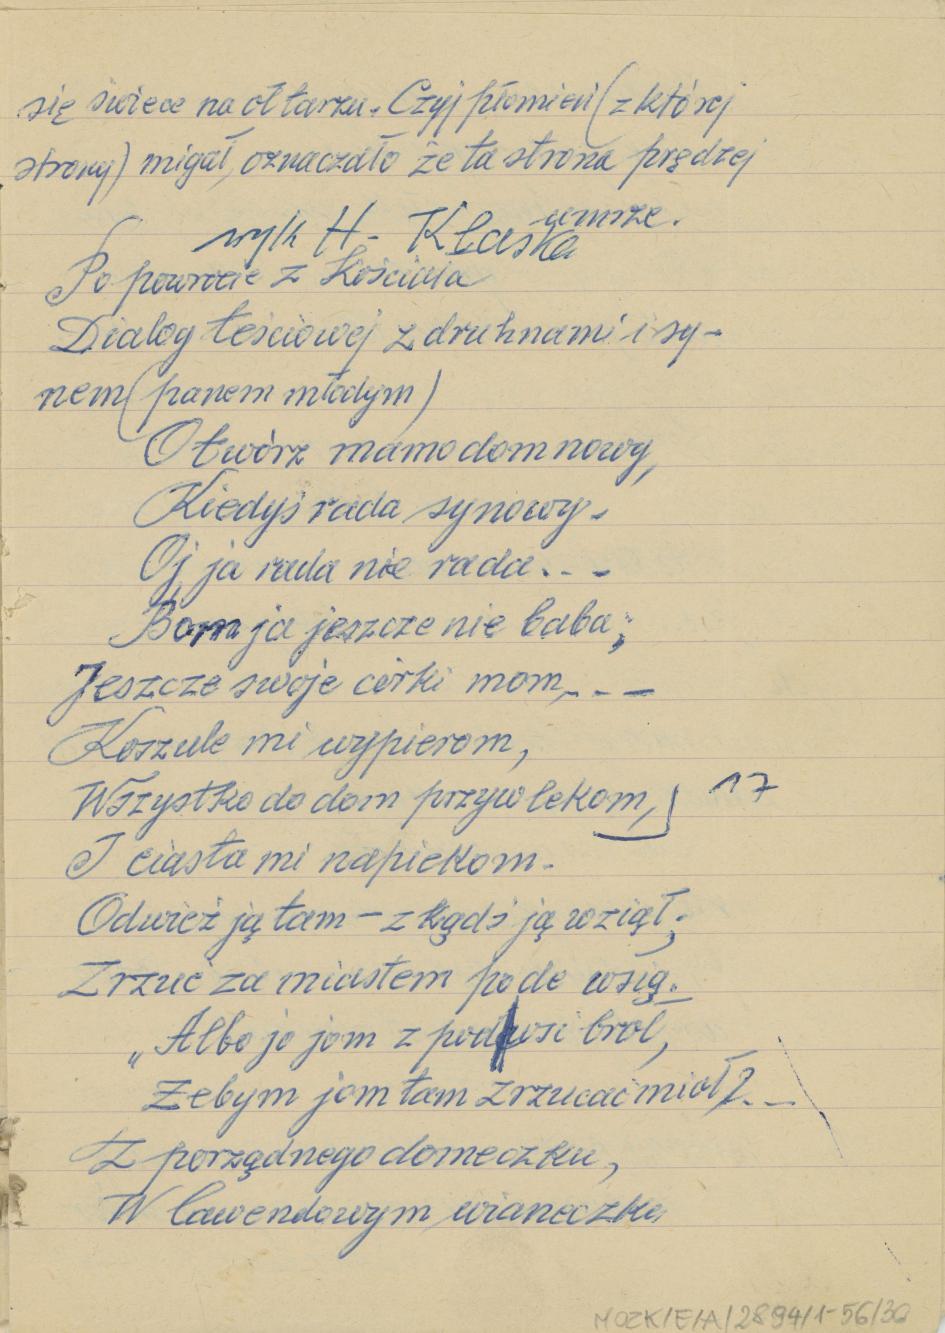 się świece na ołtarzu. Czyj płomień (z której
strony) migał, oznaczało że ta strona prędzej
umrze.
wyk H. Kłaska
Po powrocie z Kościoła
Dialog teściowej z druhnami i sy-
nem (panem młodym)
Otwórz mamo dom nowy,
Kiedyś rada synowy.
Oj ja rada nie rada...
Bom ja jeszcze nie baba;
Jeszcze swoje córki mom,...
Koszule mi wypierom,
Wszystko do dom przywlekom, 17
I ciasta mi napiekom.
Odwieź ją tam – z kądś ją wziął;
Zrzuć za miastem pode wsią.
„Albo jo jom z pod wsi broł,
Żebym jom tam zrzucać mioł?...
Z porządnego domeczku,
W lawendowym wianeczku
MOZK/E/A/2894/1-56/36